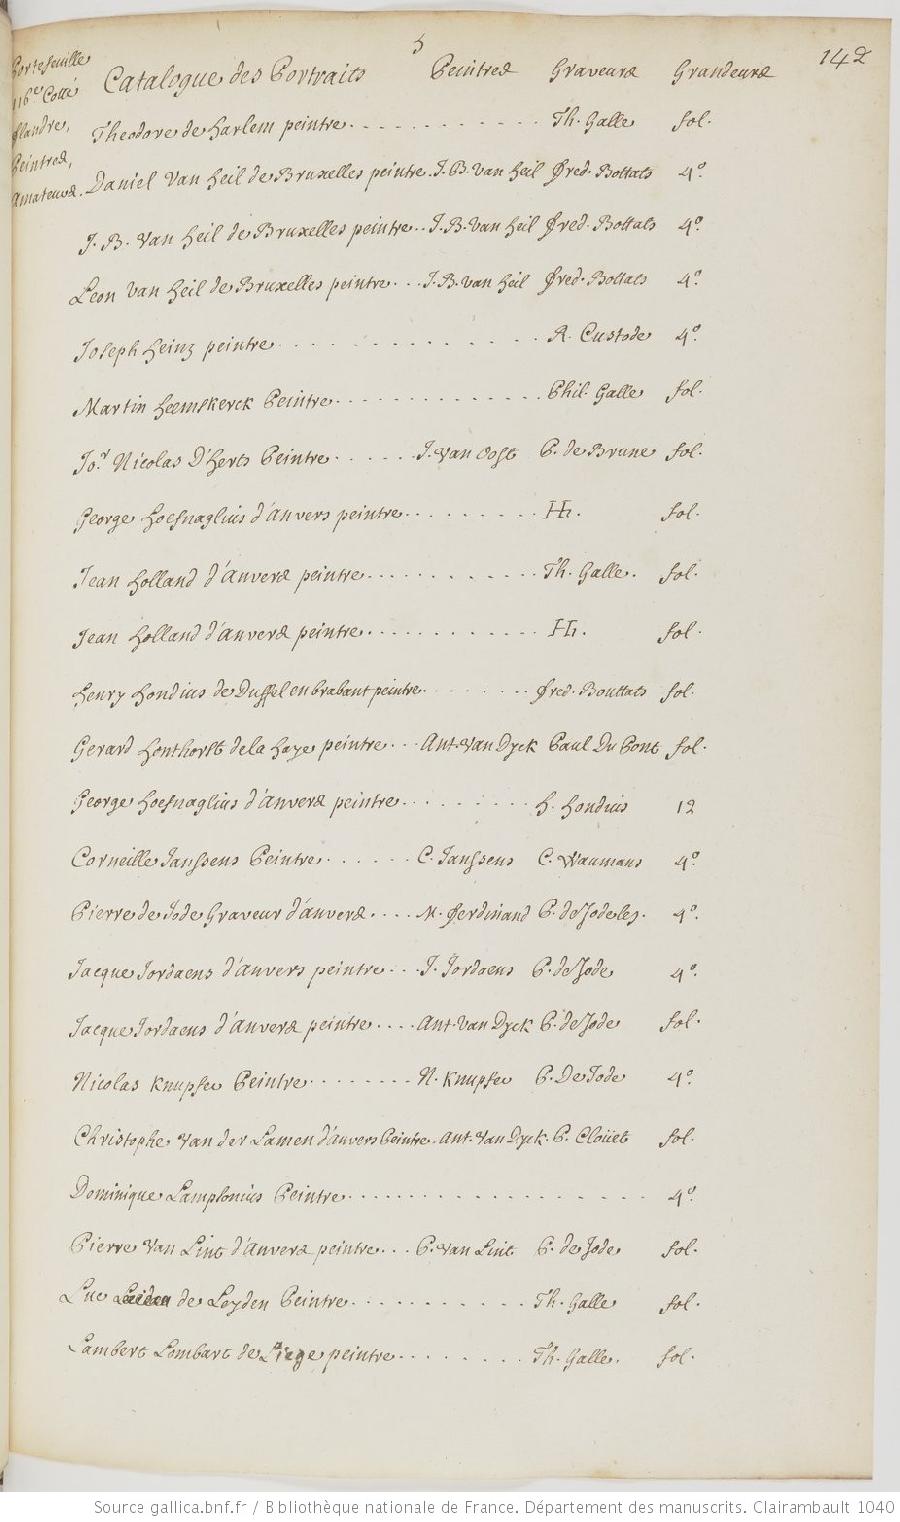 5
142
Portefeuille
116e Cotté
flandre,
Peintres,
Amateurs.
Catalogue des Portraits Peintres Graveurs Grandeurs
Theodore de Harlem peintre. Th. Galle fol.
Daniel Van Heil de Bruxelles peintre. J. B. van heil Fred. Bottats 4°.
J. B. Van Heil de Bruxelles peintre. J. B. van heil Fred. Bottats 4°.
Leon Van Heil de Bruxelles peintre. J. B. van heil Fred. Bottats 4°.
Joseph Heinz peintre. R. Custode 4°.
Martin Heemskerck Peintre. Phil. Galle fol.
Jo.r Nicolas D'herts Peintre. J. van Oost P. de Brune fol.
George hoefnaglius d'anvers peintre. HH. fol.
Jean Holland d'anvers peintre. Th. Galle. fol.
Jean Holland d'anvers peintre. HH. fol.
Henry Hondius de Duffel en brabant peintre. Fred. Bouttats fol.
Gerard Honthorst de la Haye peintre. Ant. Van Dyck Paul Du Pont fol.
George hoefnaglius d'anvers peintre. H. Hondius 12
Corneille Janssens Peintre. C. Janssens C. Waumans 4°.
Pierre de Jode Graveur d'anvers. M. Ferdinand P. de Jode les. 4°.
Jacque Jordaens d'anvers peintre. J. Jordaens P. de Jode 4°.
Jacque Jordaens d'anvers peintre. Ant. Van Dyck P. de Jode fol.
Nicolas Knupfer Peintre. N. Knupfer P. De Jode 4°.
Christophe Van der Lamen d'anvers Peintre. Ant. Van Dyck. P. Cloüet fol.
Dominique Lampsonius Peintre. 4°.
Pierre Van Lint d'anvers peintre. P. Van Lint P. de Jode fol.
Luc de Leyden Peintre. Th. Galle fol.
Lambert Lombart de Liege peintre. Th. Galle. fol.
Source gallica.bnf.fr / Bibliothèque nationale de France. Département des manuscrits. Clairambault 1040